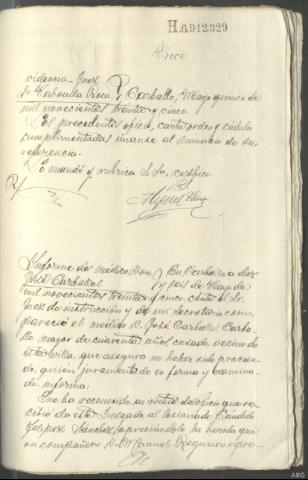 H.6.912329
Trece
videncia - Juez
Sr Taboada Roca.} Carballo, Mayo quince de
mil novecientos treinta y cinco.
Los precedentes oficio, carta orden y cédula
cumplimentadas únanse al sumario de su
referencia.
Lo mandó y rubrica el Sr, certifico.
Informe de médico Don } En Carballo a diez
José Carballal } y seis de Mayo de
mil novecientos treinta y cinco. Ante el Sr.
Juez de instrucción y de mi Secretario com-
pareció el médico D. José Carballal Carba-
llo mayor de cuarenta años casado, vecino de
esta villa, que asegura no haber sido procesa-
do, quien juramentado en forma y examina-
do, informa:
Que ha reconocido, en virtud de oficio que re-
cibió de este Juzgado al lesionado Cándido
Sánchez, apreciándole la herida que
su compañero D. Manuel Regueiro apre-
ARG